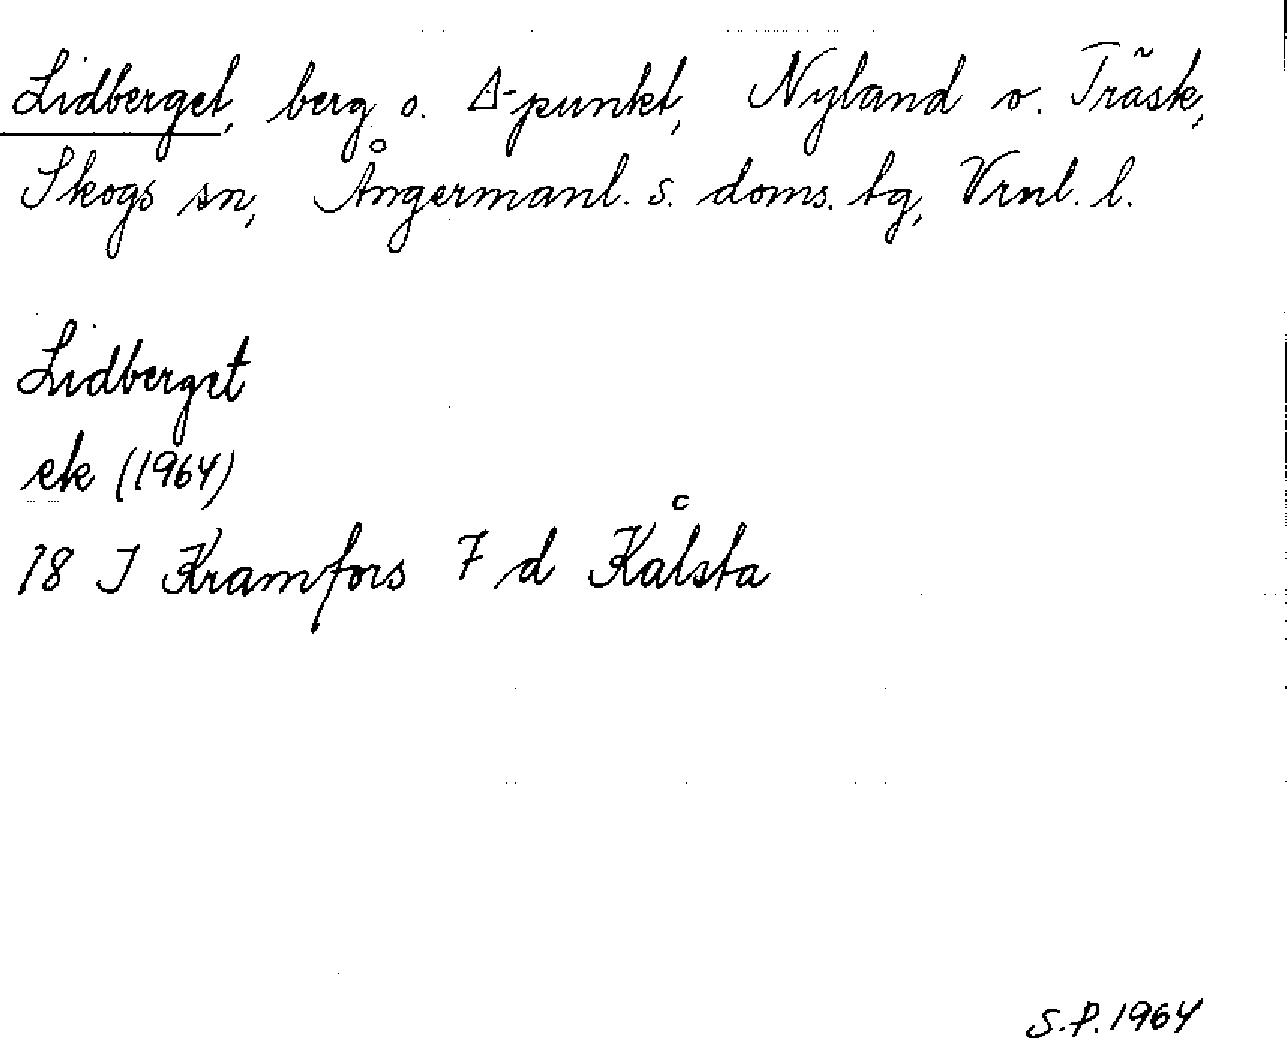 Lidberget, berg o. Δ-punkt, Nyland o. Träsk,
Skogs sn, Ångermanl. s. doms. tg, Vrnl. l.
Lidberget
ek (1964)
18 J Kramfors 7 d Kålsta
S.P. 1964